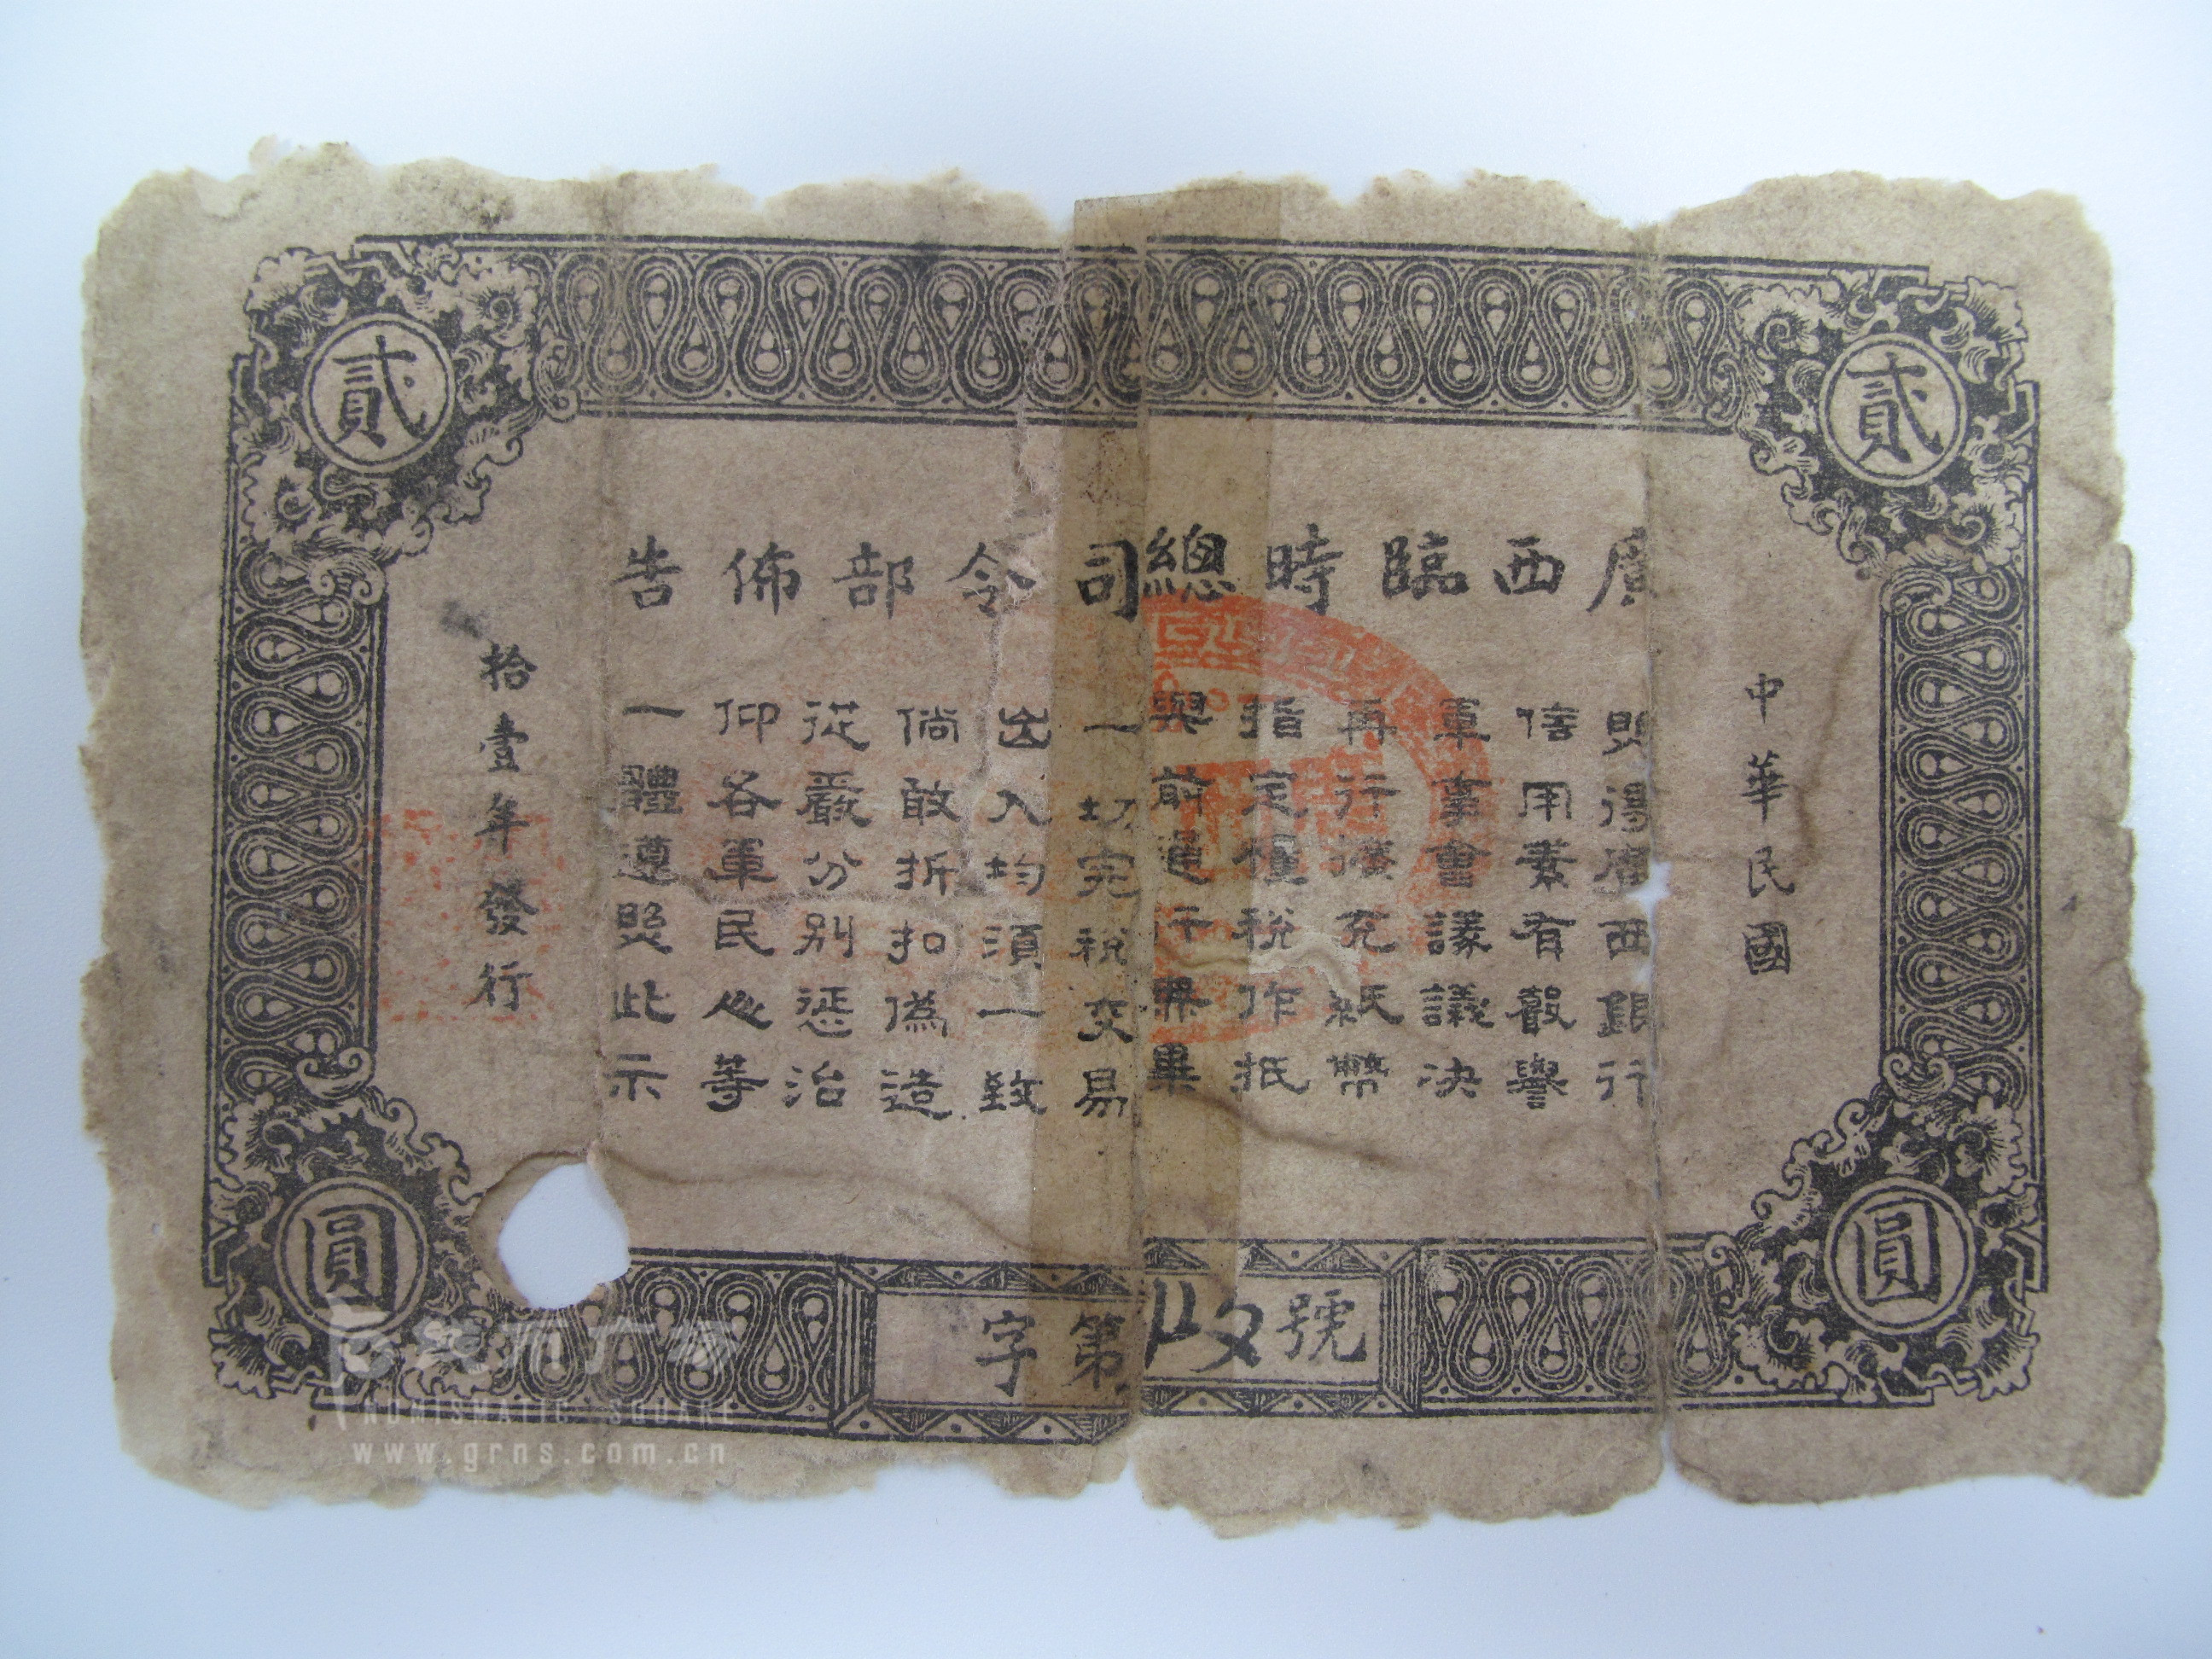 貳
貳
廣西臨時總司令部佈告
中華民國
照得廣西銀行
信用業有嚴譽
軍事會議議決
再行擴充紙幣
指定糧税作抵
與前通行畢
一切完税交易
出入均須一致
倘敢折扣偽造
從嚴分别惩治
仰各軍民人等
一體遵照此示
拾壹年發行
字第號
圓
圓
NUMISMATIC SQUARE
www.grns.com.cn